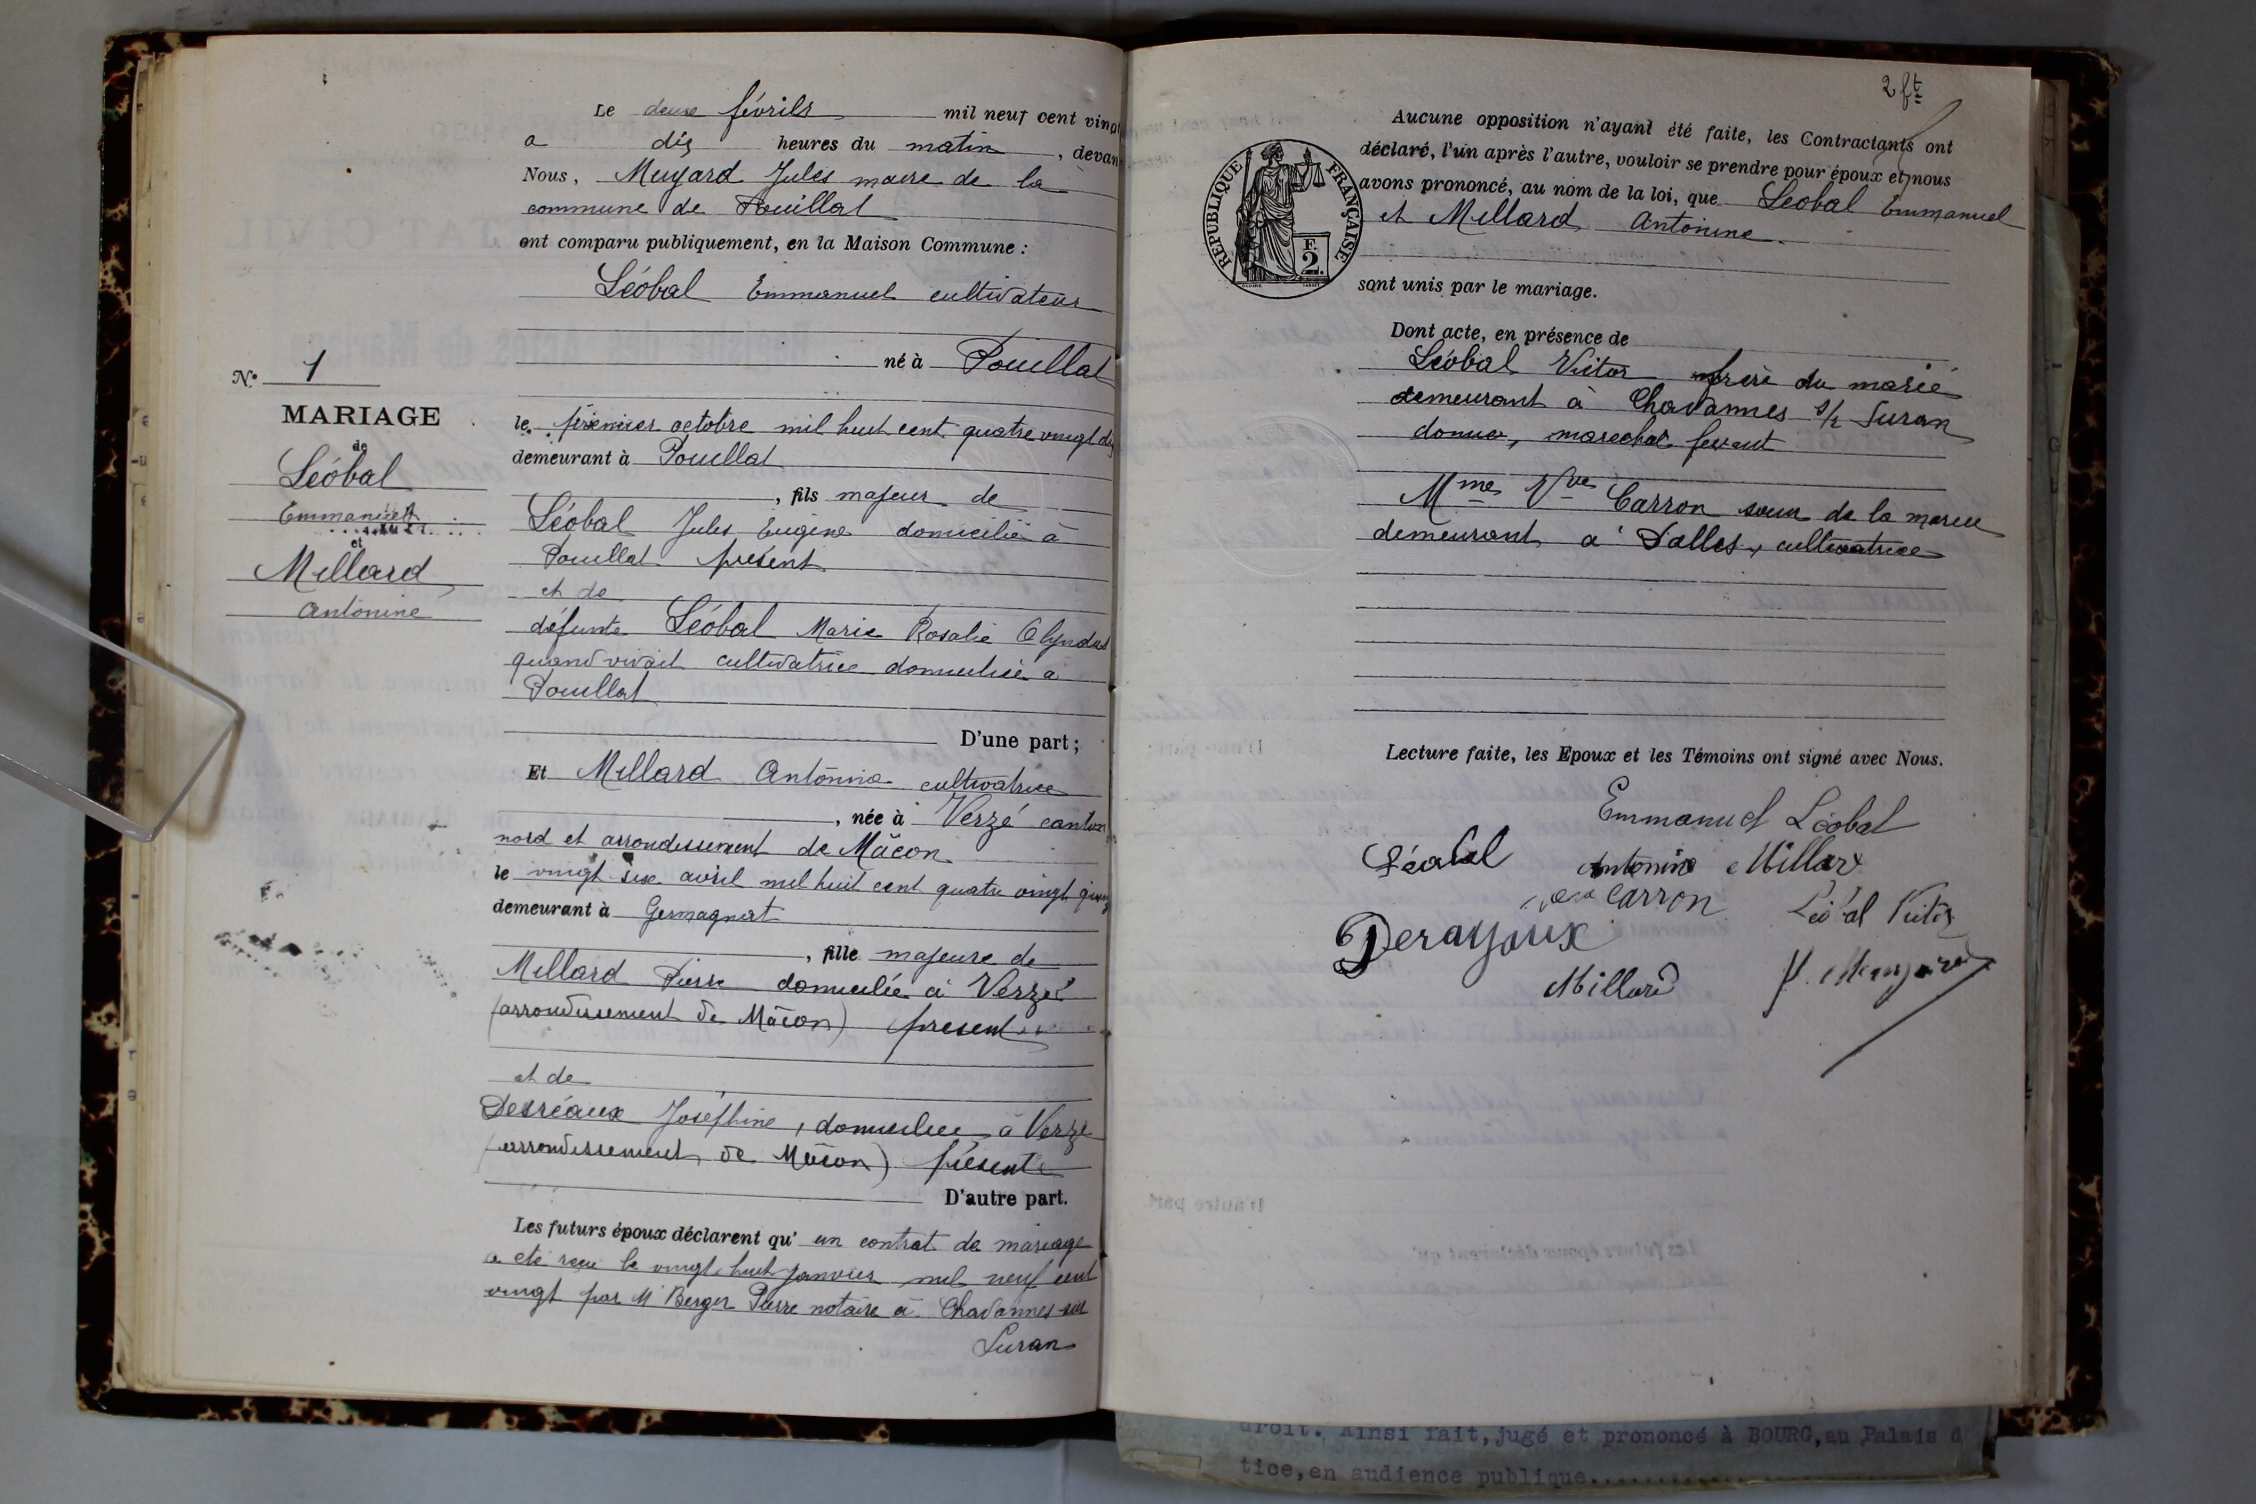 Le deux février mil neuf cent vingt
a dix heures du matin, devant
Nous, Muyard Jules maire de la
commune de Pouillat
ont comparu publiquement, en la Maison Commune :
Léobal Emmanuel cultivateur
né à Pouillat
le premier octobre mil huit cent quatre vingt dix
demeurant à Pouillat
, fils majeur de
Léobal Jules Eugène domicilié à
Pouillat présent
et de
défunte Léobal Marie Rosalie
quand vivait cultivatrice domiciliée à
Pouillat
D'une part ;
Et Millard Antonine cultivatrice
, née à Verzé canton
nord et arrondissement de Mâcon
le vingt six avril mil huit cent quatre vingt
demeurant à Germagnat
, fille majeure de
Millard Pierre domicilié à Verzé
(arrondissement de Mâcon) présent
et de
Desréaux Joséphine, domiciliée à Verzé
(arrondissement de Mâcon) présente
D'autre part.
Les futurs époux déclarent qu' un contrat de mariage
a été reçu le vingt huit janvier mil neuf cent
vingt par M Berger Pierre notaire à Chavannes sur
Suran
N° 1
MARIAGE
de
Léobal
Emmanuel
et
Millard
Antonine
2 ft
REPUBLIQUE FRANÇAISE
F.
2.
Aucune opposition n'ayant été faite, les Contractants ont
déclaré, l'un après l'autre, vouloir se prendre pour époux et nous
avons prononcé, au nom de la loi, que Léobal Emmanuel
et Millard Antonine.
sont unis par le mariage.
Dont acte, en présence de
Léobal Victor frère du marié
demeurant à Chavannes s/r Suran
marechal ferrant
Mme Vve Carron sœur de la mariée
demeurant à Salles, cultivatrice
Lecture faite, les Epoux et les Témoins ont signé avec Nous.
Emmanuel Léobal
Léobal Antonine Millard
Carron Léobal Victor
Derayoux
Millard
droit. Ainsi fait, jugé et prononcé à BOURG, au Palais d
tice, en audience publique..........